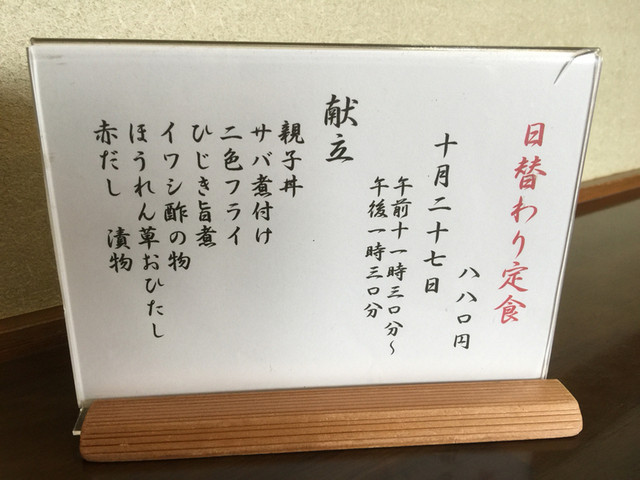 日替わり定食
八八〇円
十月二十七日
午前十一時三〇分～
午後一時三〇分
献立
親子丼
サバ煮付け
二色フライ
ひじき旨煮
イワシ酢の物
ほうれん草おひたし
赤だし 漬物